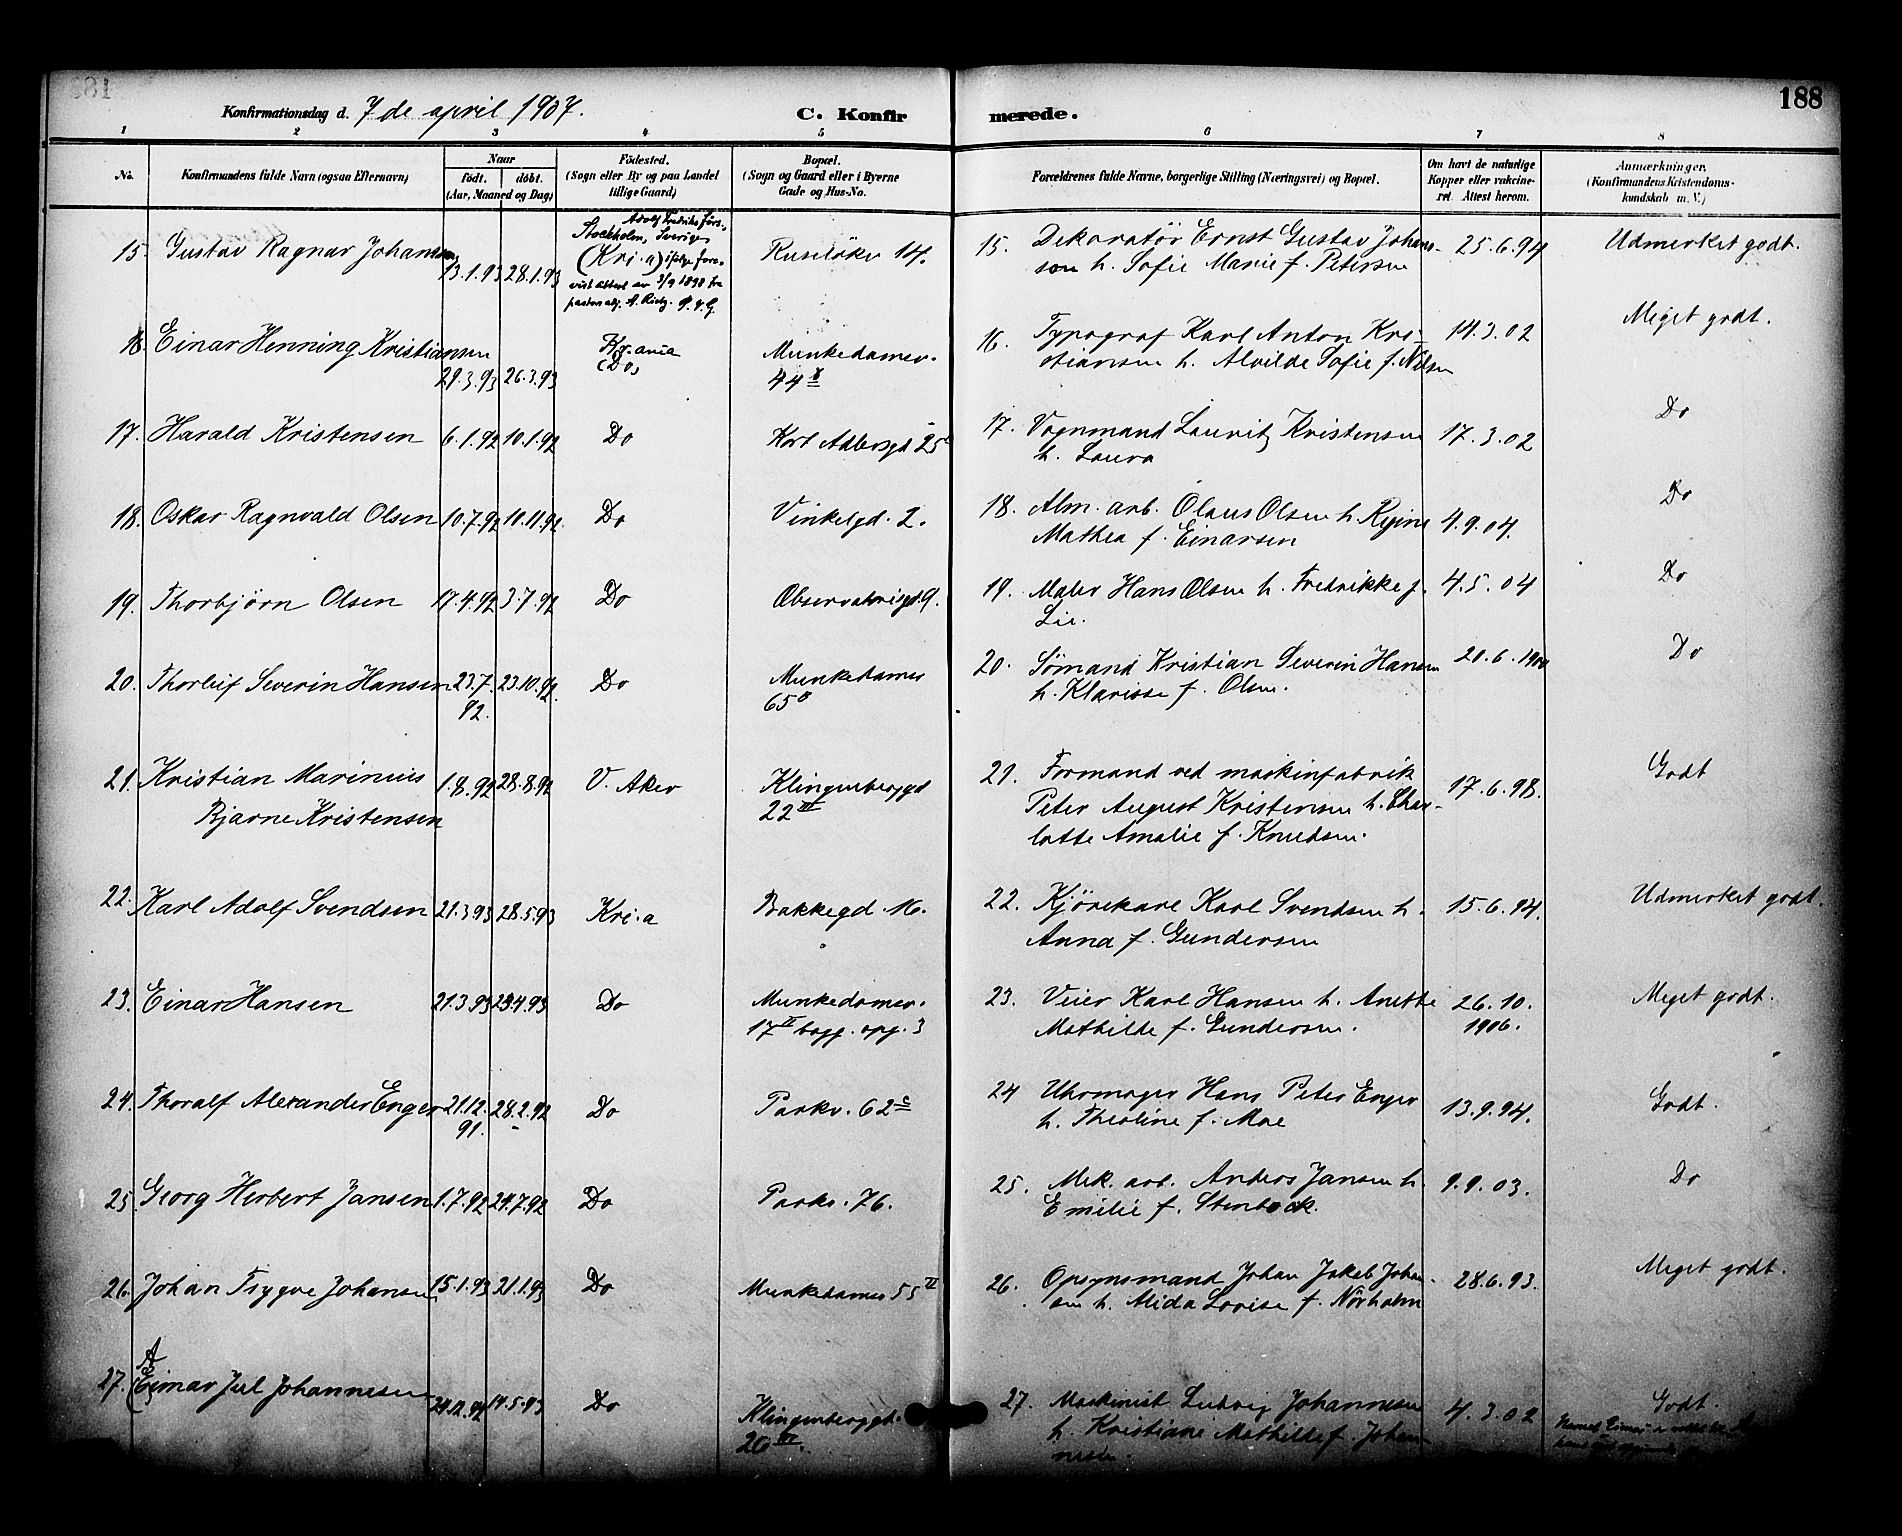 188
Konfirmationsdag d. 7 de april 1907.
C. Konfirmerede.
1 2 3 4 5 6 7 8
No. Konfirmandens fulde Navn (ogsaa Efternavn) Naar født. døbt. (Aar, Maaned og Dag) Födested. (Sogn eller By og paa Landet tillige Gaard) Bopæl. (Sogn og Gaard eller i Byerne Gade og Hus-No. Forældrenes fulde Navne, borgerlige Stilling (Næringsvei) og Bopæl. Om havt de naturlige Kopper eller vakcineret. Attest herom. Anmærkninger. (Konfirmandens Kristendomskundskab m. V.)
15. Gustav Ragnar Johansson 13.1.93 28.1.93 Adolf Fredriks förs.,
Stockholm, Sverige
(Kri.a) ifølge fore-
vist attest av 3/9 1898 fra
Ruseløkv 14.
15. Dekoratør Ernst Gustav Johans- 25.6.94 Udmerket godt.
son h. Sofie Marie f. Petersen
16. Einar Henning Kristiansen 29.3.93 26.3.93 Kr.ania
(Do) Munkedamsv.
44
16. Typograf Karl Anton Kri- 14.3.02 Meget godt.
stiansen h. Alvilde Sofie f. Nilsen
17. Harald Kristensen 6.1.92 10.1.92 Do Kort Adelersgd 25
17. Vognmand Lauritz Kristensen 17.3.02 Do
h. Laura
18. Oskar Ragnvald Olsen 10.7.92 10.11.92. Do Vinkelgd. 2.
18. Alm. arb. Olaus Olsen h. Regine 4.9.04. Do
Mathea f. Einarsen
19. Thorbjørn Olsen 17.4.92 3.7.92 Do Observatoriegd. 9.
19. Maler Hans Olsen h. Fredrikke f. 4.5.04 Do
Lie.
20. Thorleif Severin Hansen 23.7.92. 23.10.92. Do Munkedamsv
65 B
20. Sømand Kristian Severin Hansen 20.6.1900 Do
h. Klarisse f. Olsen.
21. Kristian Marinius 1.8.92 28.8.92 V. Aker Klingenberggd
Bjarne Kristensen 22 III
21. Formand ved maskinfabrik 17.6.98. Godt
Peter August Kristensen h. Char-
lotte Amalie f. Knudsen.
22. Karl Adolf Svendsen 21.3.93 28.5.93 Kri.a Bakkegd. 16.
22. Kjørekarl Karl Svendsen h. 15.6.94. Udmerket godt.
Anna f. Gundersen
23. Einar Hansen 21.3.93 Do Munkedamsv.
17 II bagg. opg. 3
23. Veier Karl Hansen h. Anette 26.10.1906. Meget godt.
Mathilde f. Gundersen.
24. Thoralf Alexander Enger 21.12.91. 28.2.92 Do Parkv. 62 c
24 Uhrmager Hans Peter Enger 13.9.94. Godt.
h. Theoline f. Moe
25. Georg Herbert Jansen 1.7.92 24.7.92 Do Parkv. 76.
25. Mek. arb. Anders Jansen h. 9.9.03. Do
Emilie f. Stenbock.
26. Johan Trygve Johansen 15.1.93 21.1.93 Do Munkedamsv 55 II
26. Opsynsmand Johan Jakob Johan- 28.6.93. Meget godt.
sen h. Alida Lovise f. Nörholm
A
27. (E)imar Jul Johannesen 24.12.92 14.5.93 Do Klingenberggd.
20 III.
27. Maskinist Ludvig Johannesen 4.3.02 Godt.
h. Kristiane Mathilde f. Johan-
nesen.